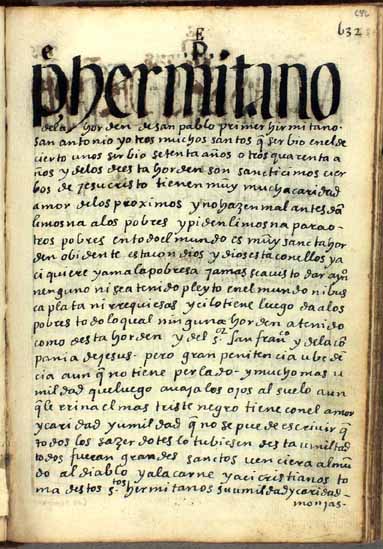 632
E P
e
phermitano
de la horden de san pablo primer hirmitano.
san antonio y otros muchos santos q̃ serbio en el de
cierto unos serbio setenta años otros quarenta a
ños y de los de esta horden son sancticimos cier
bos de jesucristo tienen muy mucha caridad
amor de los proximos y no hazen mal antes dã
limosna a los pobres y piden limosna para o
tros pobres en todo el mundo es muy sancta hor
den obidente estauan dios y dios esta con ellos ya
ci quiere y ama la pobresa jamas se a uisto dar a
nenguno ni se a tenido pleyto en el mundo ni bus
ca plata ni rrequiesas y ci lo tiene luego da a los
pobres todo lo qual ninguna horden a tenido
como desta horden y del s. san franco y de la co
pania de jesus. pero gran penitencia ubede
cia aunq̃ no tiene perlado. y mucho mas u
mildad que luego auaja los ojos al suelo aun
q̃ le rrina el mas triste negro tiene con el amor
y caridad y umildad q̃ no se puede escriuir q̃
todos los sazerdotes lo tubiesen desta umiltad
todos fueran grandes sanctos uenciera al mũ
do al diablo y a la carne y aci cristianos to
ma destos s.tos hermitanos su umildad y caridad
monjas